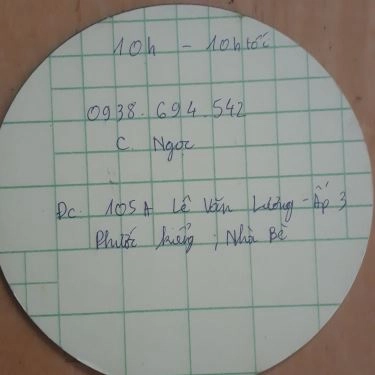 10h - 10h tối
0938.694.542
C. Ngọc
Đc. 105A Lê Văn Lương - Ấp 3
Phước kiểng, Nhà Bè